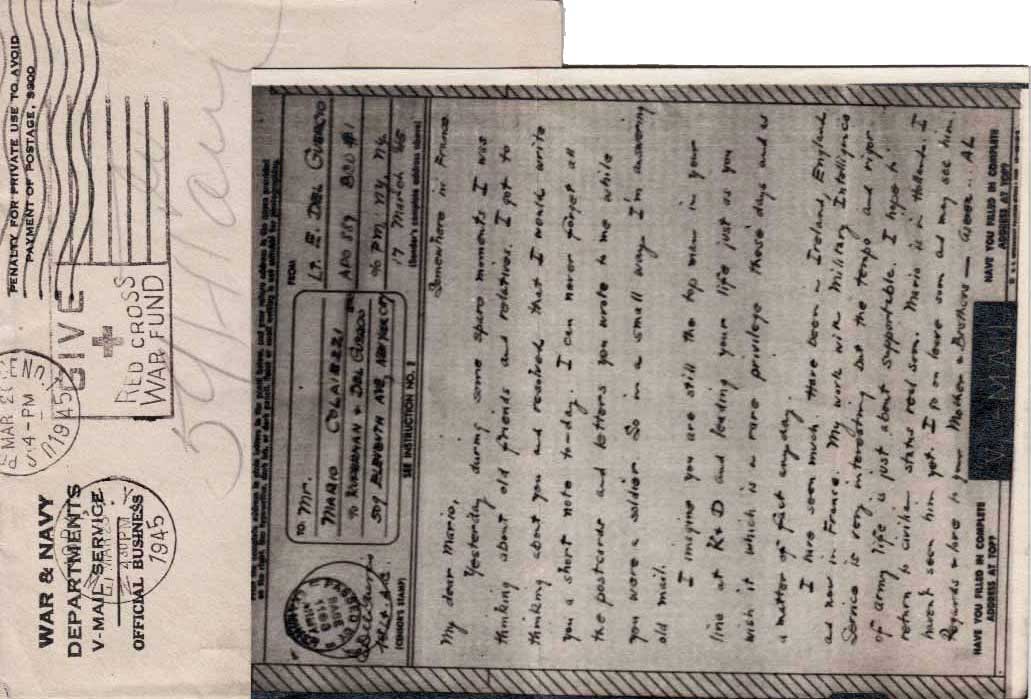 WAR & NAVY
DEPARTMENTS
V-MAIL SERVICE
OFFICIAL BUSINESS
PENALTY FOR PRIVATE USE TO AVOID
PAYMENT OF POSTAGE, $300
MAR
4-PM
1945
4 30 PM
1945
GIVE
RED CROSS
WAR FUND
TO Mr.
MARIO COLAIZZI
% KUVERMAN & DEL GUERCIO
509 ELEVENTH AVE, NEW YORK CITY
SEE INSTRUCTION NO. 2
FROM
LT. E. DEL GUERCIO
APO 887
% PM. NY, NY.
17 March 45
(Sender's complete address above)
(CENSOR'S STAMP)
PASSED BY
Somewhere in France
My dear Mario,
Yesterday during some spare moments I was
thinking about old friends and relatives. I got to
thinking about you and resolved that I would write
you a short note to-day. I can never forget all
the postcards and letters you wrote to me while
you were a soldier. So in a small way I'm answering
old mail.
I imagine you are still the top man in your
line at K & D and leading your life just as you
wish it which is a rare privilege these days and as
a matter of fact anyday.
I have seen much. Have been in Ireland, England
and now in France. My work with Military Intelligence
Service is very interesting but the tempo and rigor
of army life is just about supportable. I hope to
return to civilian status real soon. Mario is in Holland. I
havent seen him yet. I go on leave soon and may see him.
Regards & love to your Mother & Brothers — AL
HAVE YOU FILLED IN COMPLETE
ADDRESS AT TOP?
V···—MAIL
HAVE YOU FILLED IN COMPLETE
ADDRESS AT TOP?